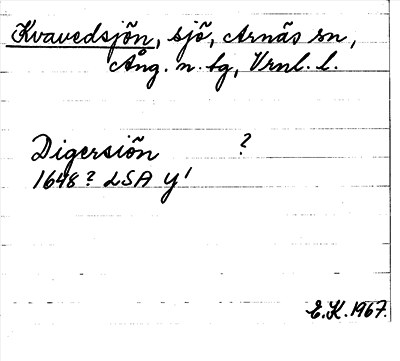 Kvavedsjön, sjö, Arnäs sn,
Ång. n. tg, Vrnl. l.
Digersiön ?
1648? LSA Y1
E.K. 1967.